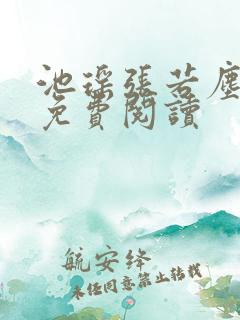 池瑶張若塵
免費閱讀
航安絳
未经同意禁止转载